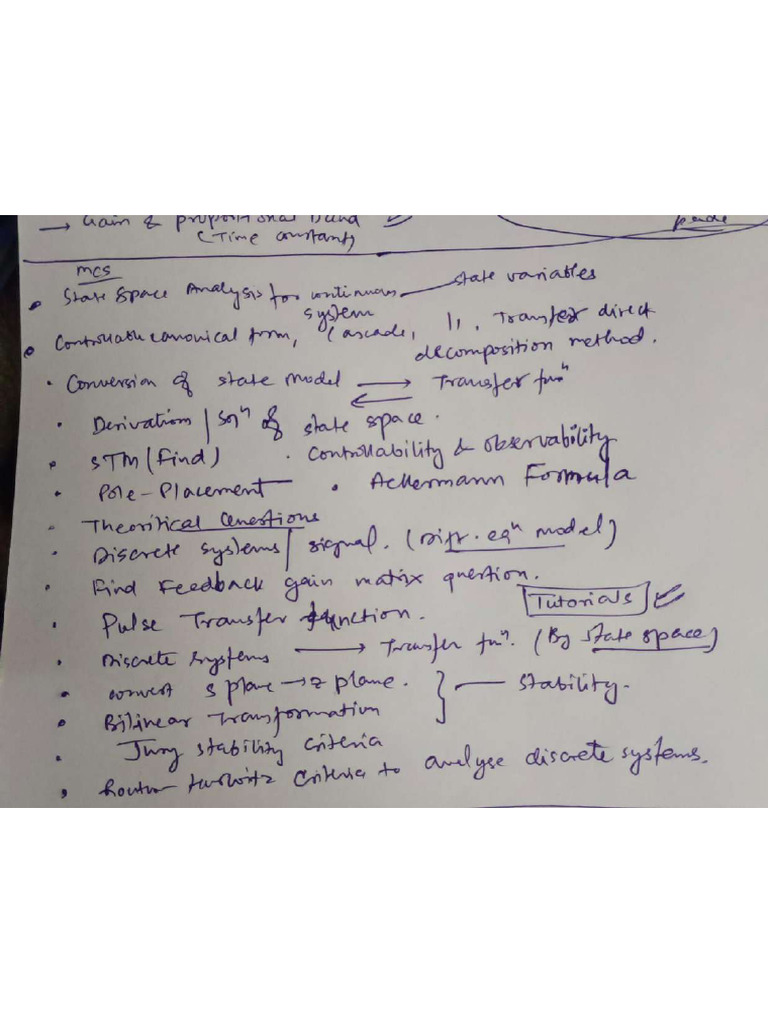 → Gain & propositional Band
(Time constant)
MCS
• State Space Analysis for continuous system — state variables
• Controllable canonical form, Cascade, ||, Transfer direct decomposition method.
• Conversion of state model ⟶ Transfer funⁿ
⟵
• Derivation / Solⁿ of state space.
• STM (Find) • Controllability & observability
• Pole-Placement • Ackermann Formula
• Theoritical Questions
• Discrete systems / signal. (Diff. eqⁿ model)
• Find Feedback gain matrix question.
Tutorials
• Pulse Transfer function.
• Discrete systems ⟶ Transfer funⁿ. (By state space)
• convert s plane → z plane. } — stability.
• Bilinear Transformation
• Jury stability criteria
• Routh Hurwitz Criteria to analyse discrete systems.